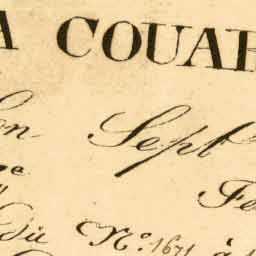 A COUAR
on Sept
Fe
Du N.º 1671 à